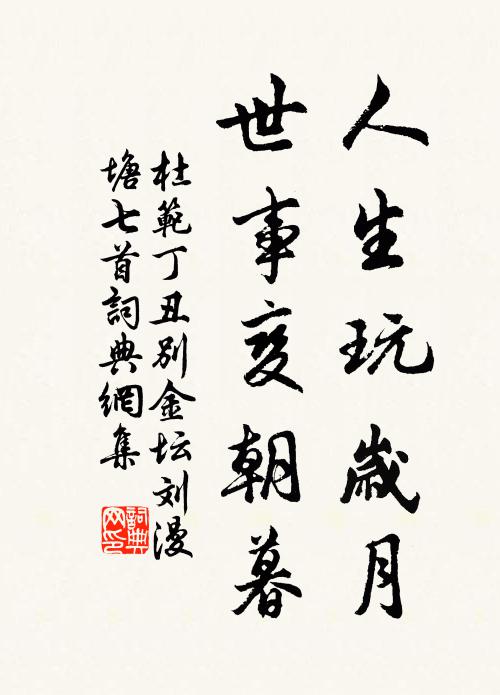 人生玩歲月
世事变朝暮
杜範丁丑别金坛刘漫
塘七首詞典網集
詞典
网印